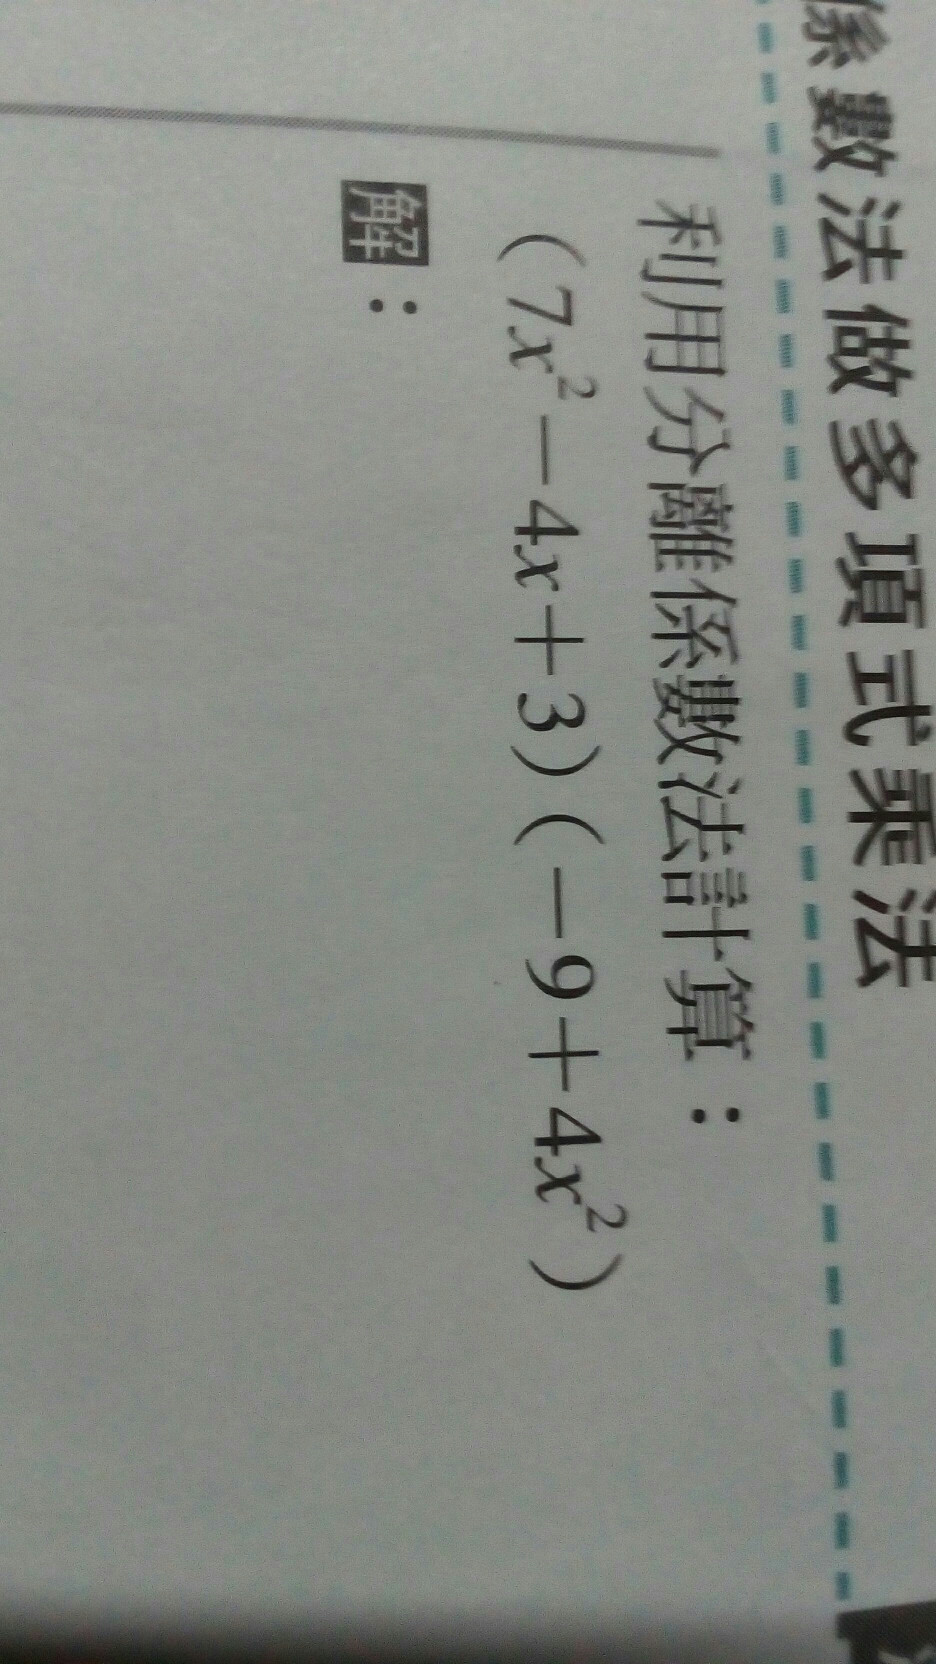 係數法做多項式乘法
利用分離係數法計算：
(7x²−4x+3)(−9+4x²)
解：